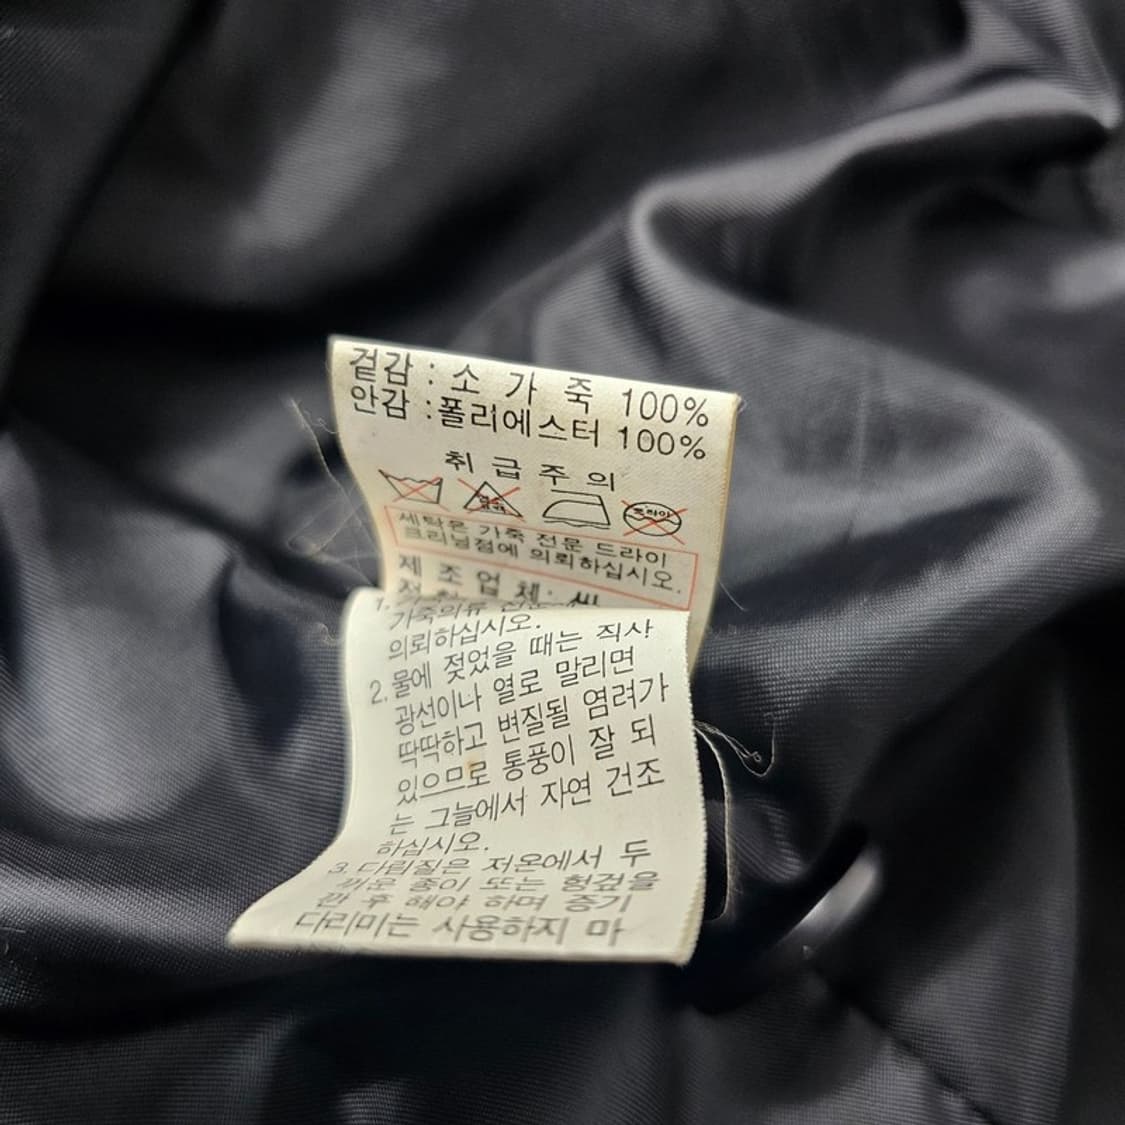 겉감 : 소 가 죽 100%
안감 : 폴리에스터 100%
취 급 주 의
염소
표백
드라이
세탁은 가죽 전문 드라이
크리닝점에 의뢰하십시오.
제 조 업 체:
1.
가죽의류 전문
의뢰하십시오.
2. 물에 젖었을 때는 직사
광선이나 열로 말리면
딱딱하고 변질될 염려가
있으므로 통풍이 잘 되
는 그늘에서 자연 건조
하십시오.
3. 다림질은 저온에서 두
꺼운 종이 또는 헝겊을
깐 후 해야 하며 증기
다리미는 사용하지 마